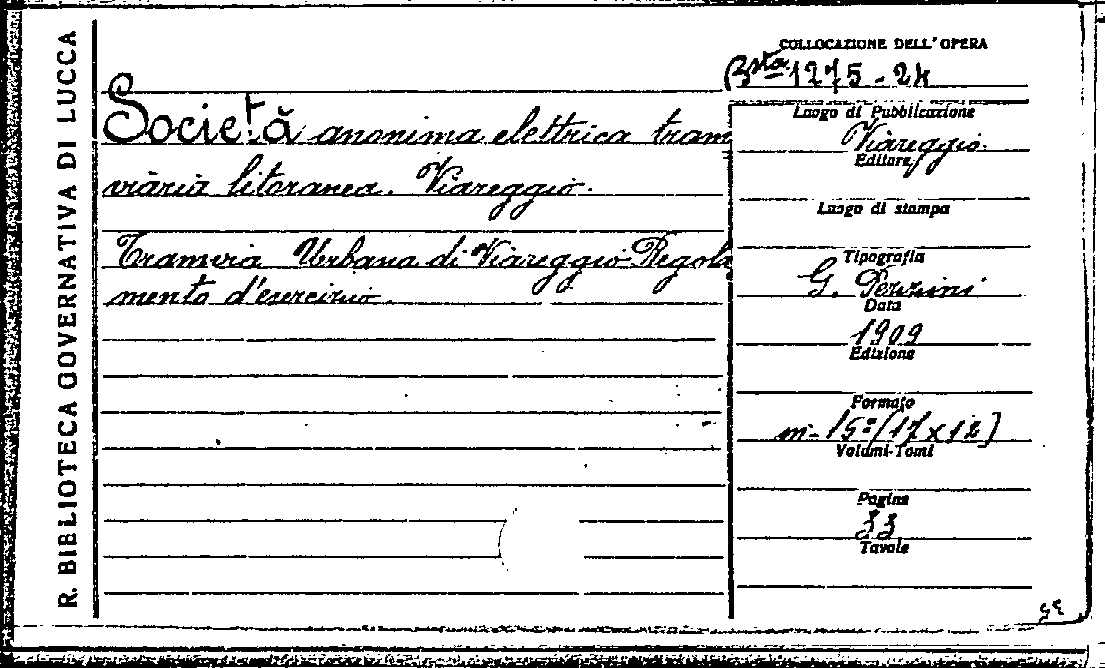 R. BIBLIOTECA GOVERNATIVA DI LUCCA
COLLOCAZIONE DELL'OPERA
Bsta 1275-24
Società anonima elettrica tram
viaria litoranea. Viareggio.
Tramvia Urbana di Viareggio Regola
mento d'esercizio.
Luogo di Pubblicazione
Viareggio.
Editore
Luogo di stampa
Tipografia
G. Pezzini
Data
1909
Edizione
Formato
in-15º (17x12)
Volumi-Tomi
Pagine
33
Tavole